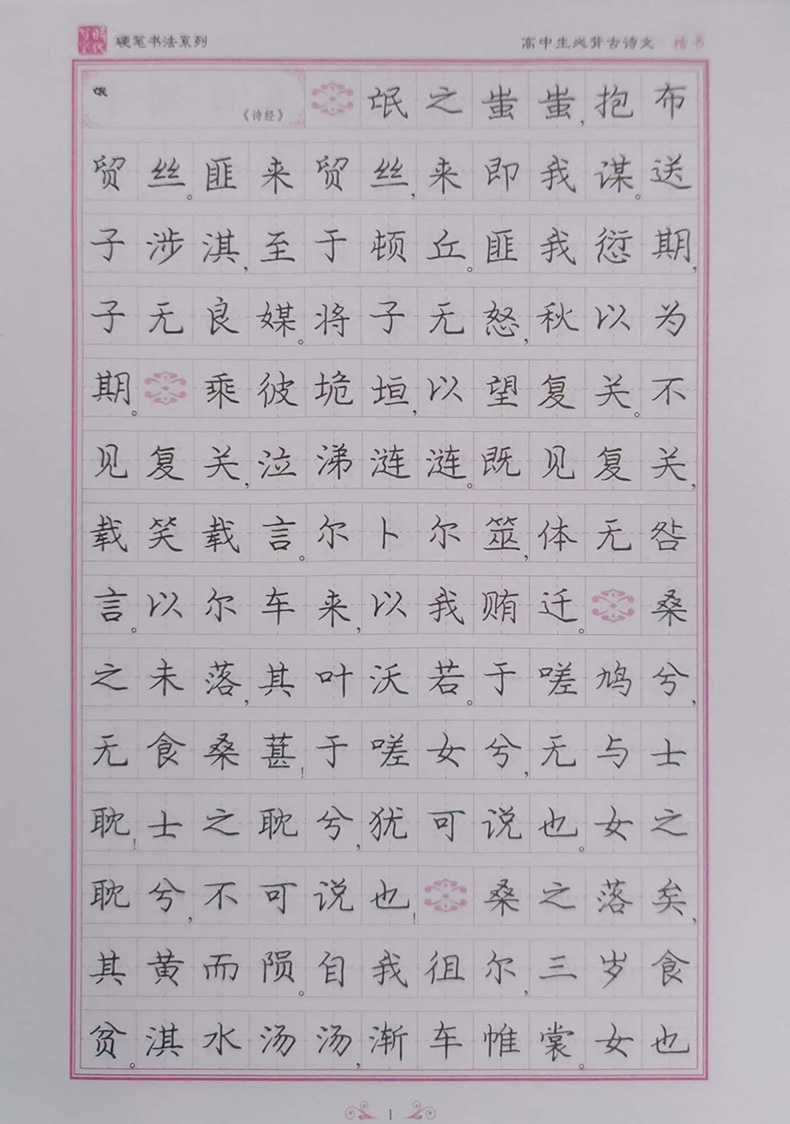 硬笔书法系列
高中生必背古诗文 楷书
氓
《诗经》
氓之蚩蚩,抱布
贸丝。匪来贸丝,来即我谋。送
子涉淇,至于顿丘。匪我愆期,
子无良媒。将子无怒,秋以为
期。乘彼垝垣,以望复关。不
见复关,泣涕涟涟。既见复关,
载笑载言。尔卜尔筮,体无咎
言。以尔车来,以我贿迁。桑
之未落,其叶沃若。于嗟鸠兮,
无食桑葚!于嗟女兮,无与士
耽!士之耽兮,犹可说也。女之
耽兮,不可说也!桑之落矣,
其黄而陨。自我徂尔,三岁食
贫。淇水汤汤,渐车帷裳。女也
1